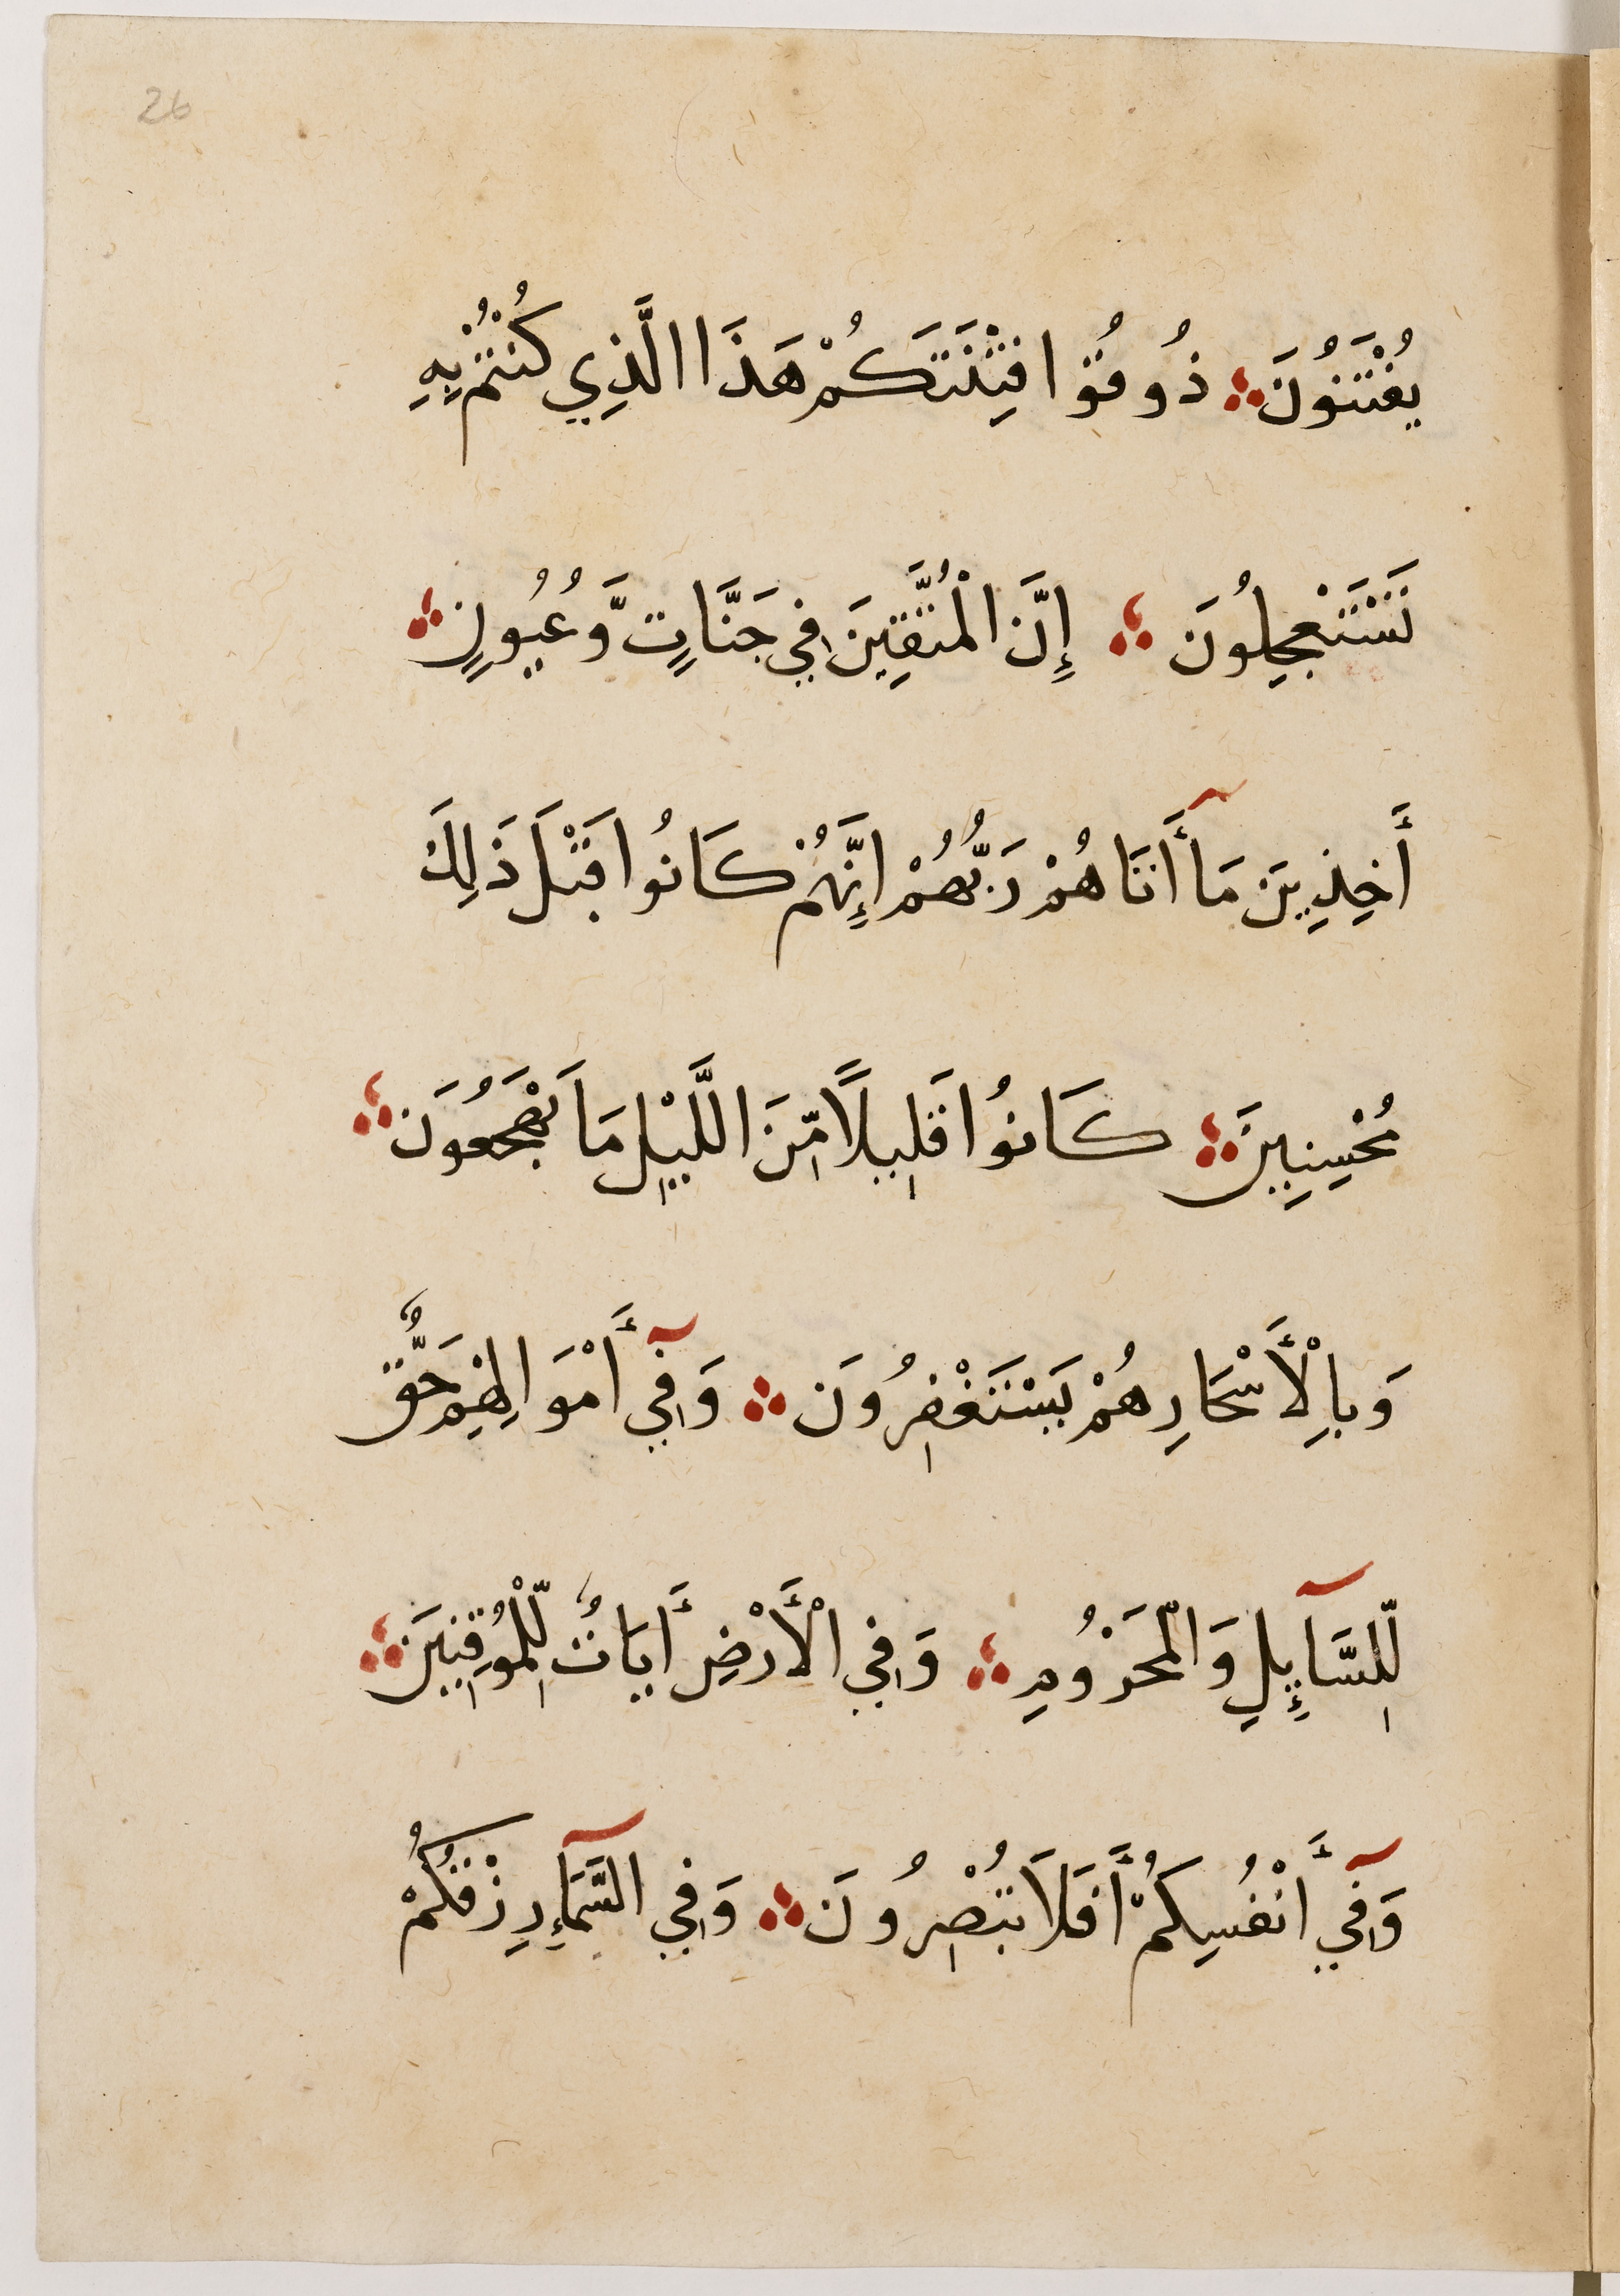 26
يُفْتَنُونَ ذُوقُوا فِتْنَتَكُمْ هَذَا الَّذِي كُنْتُمْ بِهِ
تَسْتَعْجِلُونَ إِنَّ الْمُتَّقِينَ فِي جَنَّاتٍ وَّعُيُونٍ
أَخِذِينَ مَآ أَتَاهُمْ رَبُّهُمْ إِنَّهُمْ كَانُوا قَبْلَ ذَلِكَ
مُحْسِنِينَ كَانُوا قَلِيلًا مِّنَ اللَّيْلِ مَا يَهْجَعُونَ
وَبِالْأَسْحَارِ هُمْ يَسْتَغْفِرُونَ وَفِيٓ أَمْوَالِهِمْ حَقٌّ
لِّلسَّآئِلِ وَالْمَحْرُومِ وَفِي الْأَرْضِ أَيَاتٌ لِّلْمُوقِنِينَ
وَفِيٓ أَنْفُسِكُمْ أَفَلَا تُبْصِرُونَ وَفِي السَّمَآءِ رِزْقُكُمْ